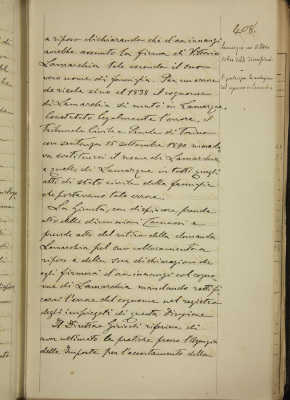 408.
a riposo dichiarando che d'ora innanzi
avrebbe assunto la firma di Vittorio
Lamarchia tale essendo il suo
vero nome di famiglia. Per un errore
da risale sino al 1838 il cognome
di Lamarchia si mutò in Lamarque.
Constatato legalmente l'errore, il
Tribunale Civile e Penale di Torino
con sentenza 15 settembre 1890 mandava
sostituirsi il nome di Lamarchia
a quello di Lamarque in tutti quegli
atti di stato civile della famiglia
che portavano tale errore.
La Giunta, con dispiacere, prende
atto delle dimissioni
prende atto del ritiro della domanda
Lamarchia pel suo collocamento a
riposo e della sua dichiarazione che
egli firmerà d'ora innanzi col cogno-
me di Lamarchia mandando rettifi-
carsi l'errore del cognome nel registro
degli impiegati di questa Divisione
Il Direttore riferisce di
aver ultimato le pratiche presso l'Agenzia
delle Imposte per l'accertamento della